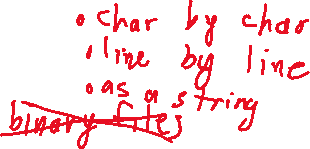 • char by char
• line by line
• as a string
binary files